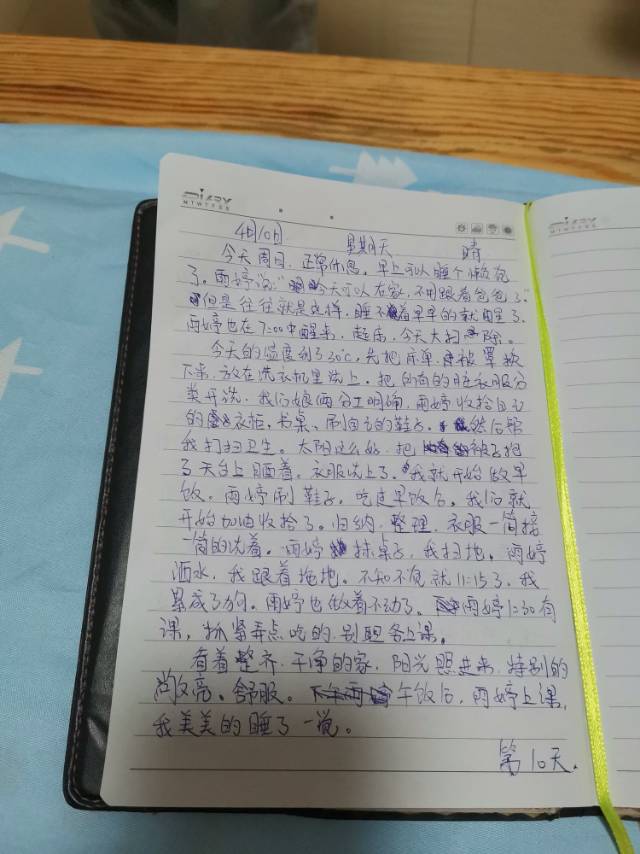 DIARY
M T W T F S S
4月10日 星期天 晴
今天周日,正常休息,早上可以睡个懒觉
了。雨婷说:"今天可以在家,不用跟着爸爸了。"
但是往往就是这样,睡不着早早的就醒了。
雨婷也在7:00中醒来,起床,今天大扫除。
今天的温度到了30℃,先把床单,被罩换
下来,放在洗衣机里洗上。把的脏衣服分
类开洗,我们娘俩分工明确,雨婷收拾自己
的衣柜,书桌、刷自己的鞋子,然后帮
我打扫卫生。太阳这么好,把被子抱
了天台上晒着。衣服洗上了。我就开始做早
饭,雨婷刷鞋子,吃过早饭后。我们就
开始加油收拾了。归纳,整理,衣服一筒接
一筒的洗着。雨婷抹桌子,我扫地。雨婷
洒水,我跟着拖地。不知不觉就11:15了,我
累成了狗。雨婷也做着不动了。雨婷1:30有
课,抓紧弄点吃的,别耽务上课。
看着整齐,干净的家,阳光照进来,特别的
敞亮。舒服。午饭后,雨婷上课,
我美美的睡了一觉。
第10天.